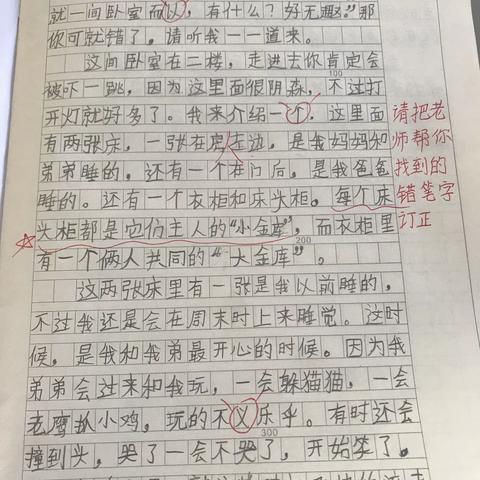 就一间卧室而以，有什么？好无趣。”那
你可就错了。请听我一一道来。
这间卧室在二楼，走进去你肯定会
被吓一跳，因为这里面很阴森，不过打
100
开灯就好多了。我来介绍一个，这里面
有两张床，一张在左边，是我妈妈和
弟弟睡的。还有一个在门后，是我爸爸
睡的。还有一个衣柜和床头柜。每个床
头柜都是它们主人的“小金库”，而衣柜里
200
有一个俩人共同的“大金库”。
这两张床里有一张是我以前睡的，
不过我还是会在周末时上来睡觉。这时
候，是我和我弟最开心的时候。因为我
弟弟会过来和我玩，一会躲猫猫，一会
老鹰抓小鸡，玩的不义乐乎。有时还会
300
撞到头，哭了一会不哭了，开始笑了。
请把老
师帮你
找到的
错笔字
订正